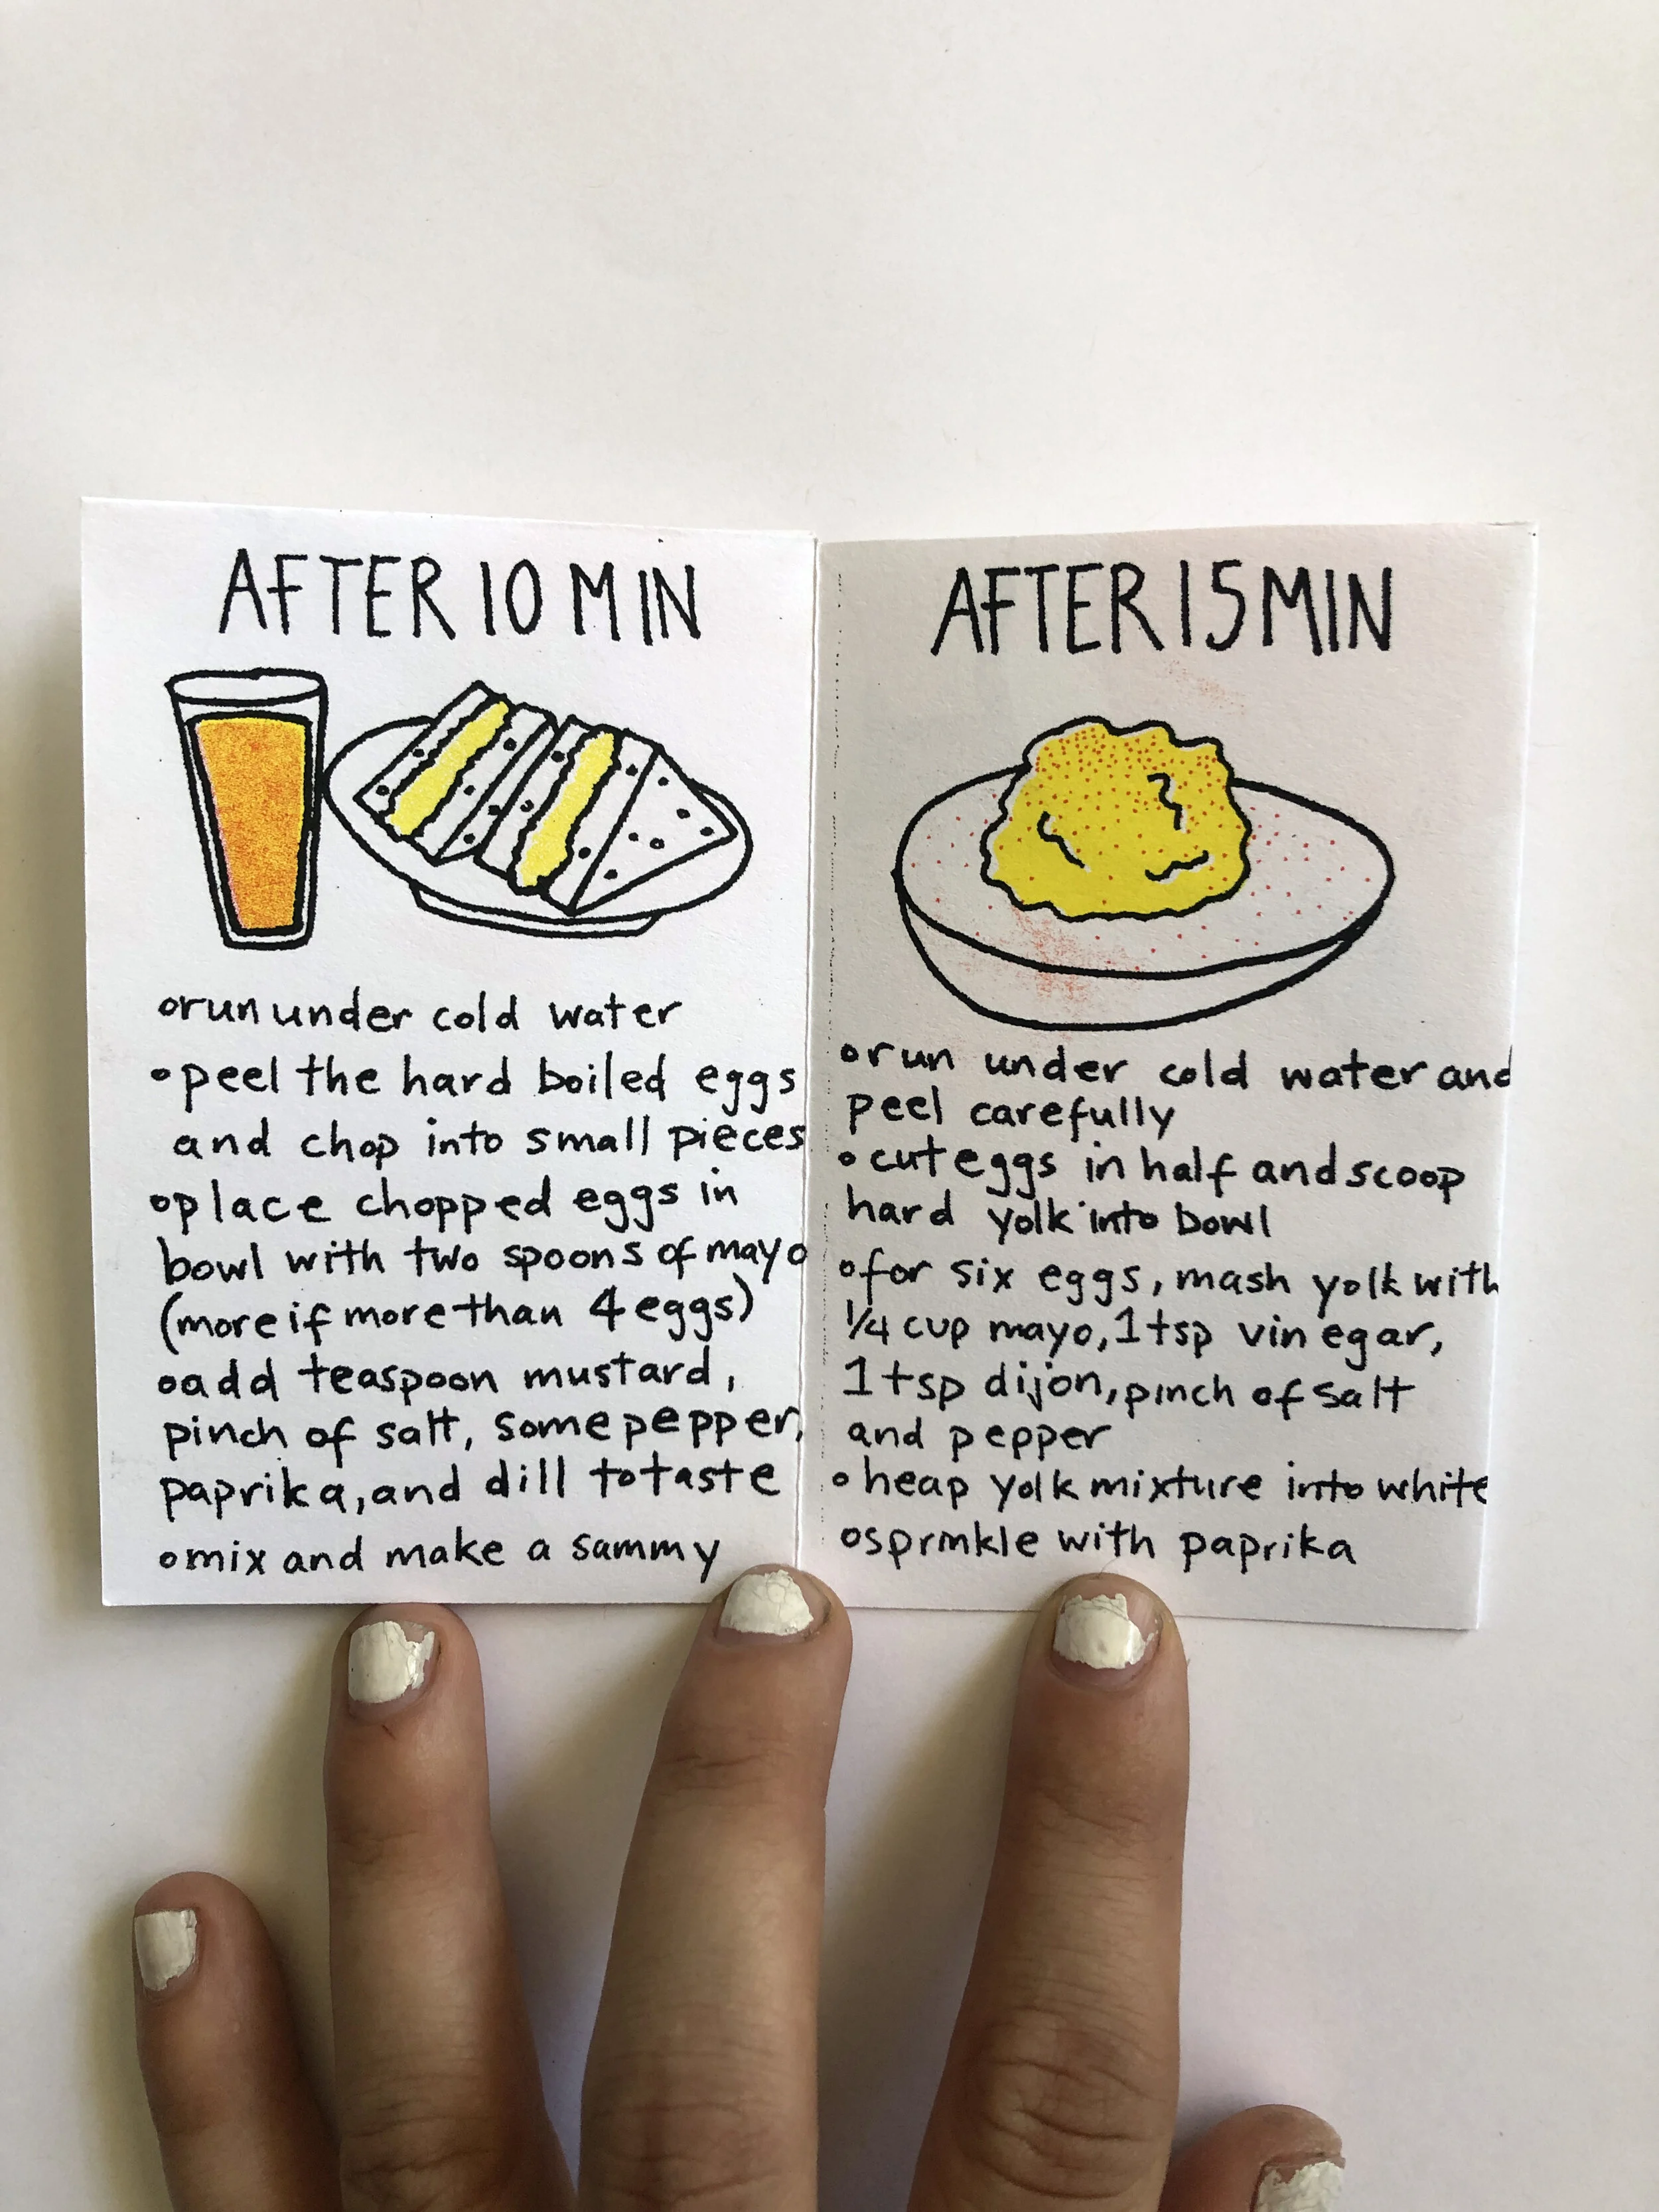 AFTER 10 MIN
run under cold water
peel the hard boiled eggs
and chop into small pieces
place chopped eggs in
bowl with two spoons of mayo
(more if more than 4 eggs)
add teaspoon mustard,
pinch of salt, some pepper,
paprika, and dill to taste
mix and make a sammy
AFTER 15 MIN
run under cold water and
peel carefully
cut eggs in half and scoop
hard yolk into bowl
for six eggs, mash yolk with
1/4 cup mayo, 1 tsp vinegar,
1 tsp dijon, pinch of salt
and pepper
heap yolk mixture into white
sprinkle with paprika